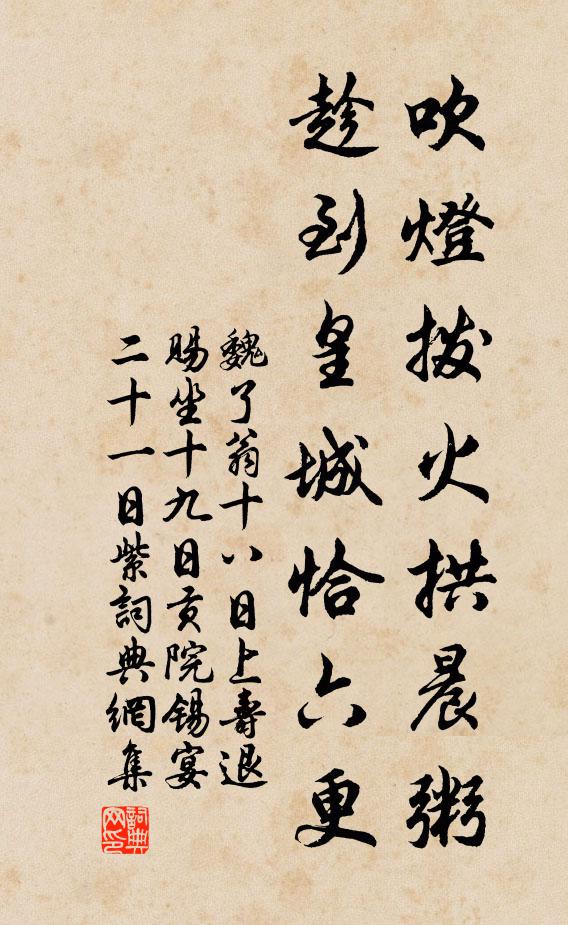 吹燈撥火拱晨粥
趁到皇城恰六更
魏了翁十八日上壽退
賜坐十九日貢院錫宴
二十一日紫詞典網集
詞典網印